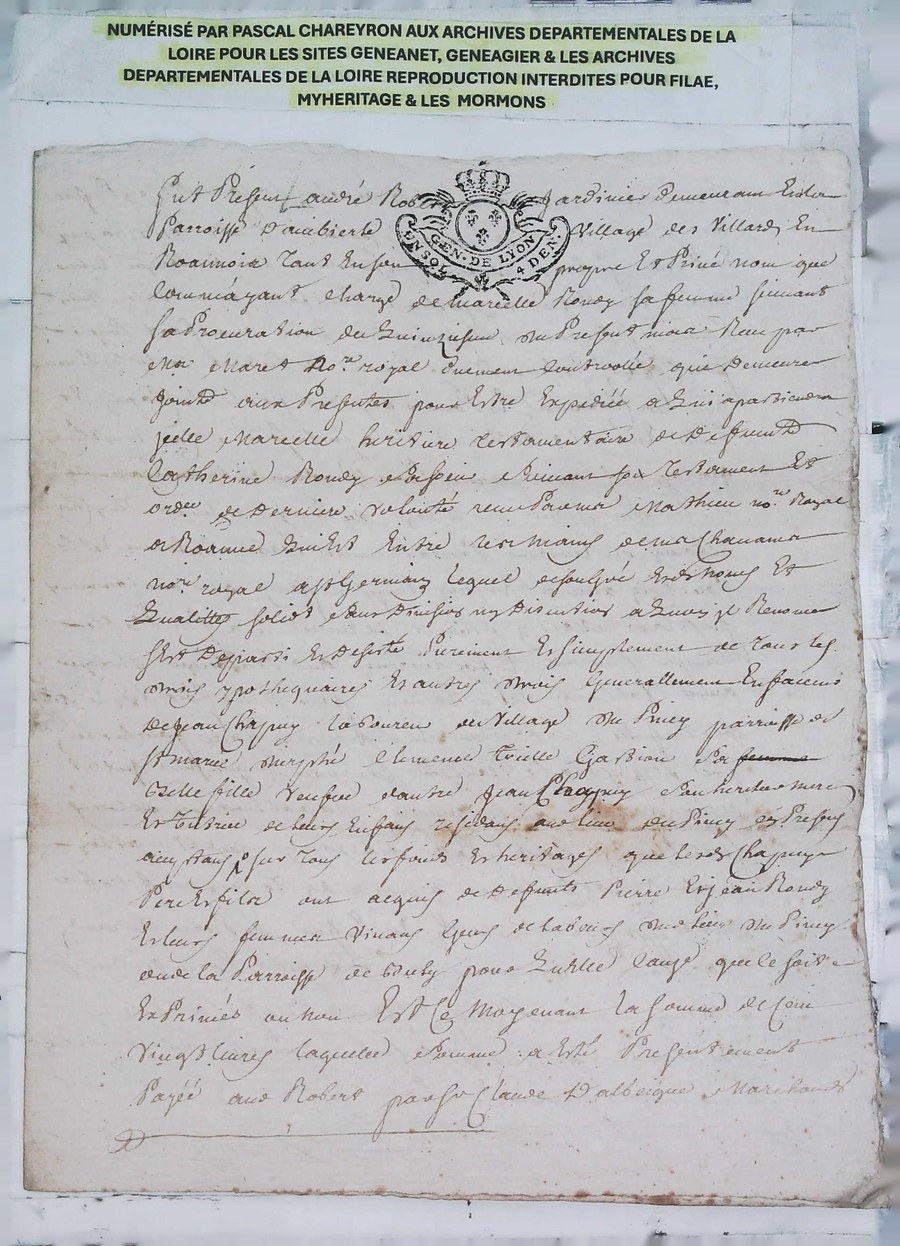 NUMÉRISÉ PAR PASCAL CHAREYRON AUX ARCHIVES DEPARTEMENTALES DE LA
LOIRE POUR LES SITES GENEANET, GENEAGIER & LES ARCHIVES
DEPARTEMENTALES DE LA LOIRE REPRODUCTION INTERDITES POUR FILAE,
MYHERITAGE & LES MORMONS
Fut Présent andré Rob Jardinier demeurant En la
Parroisse D'ambierle Village des Villards En
GEN. DE LYON
UN SOL 4 DEN.
Roannois Tant En son propre Et Privé nom que
Comme ayant charge de marcelle Rondy sa femme suivant
sa Procuration du du Present mois Recu par
Me Maret No.re royal Duement Controllée qui Demeurera
Jointe aux Presentes pour Estre Expediée a Qui apartiendra
jcelle Marcelle heritiere Testamentaire de Deffunte
Catherine Rondy suivant son Testament Et
ord.ce de Derniere Volonté recu Par me Mathieu no.re Royal
a Roanne Qui Est Entre les mains de me Chavanne
no.re royal a St Germain lequel de son gré Et
Qualittés solid.t sans Division ny Discution a Quoy jl Renonce
s'Est Deparsi Et Desisté Purement Et simplement de Tous les
droits ypothequaires Et autres droits Generallement En faveur
De Jean Chapuy laboureur du Village du Piney parroisse de
femme
fille Veufve d'autre Jean Chappuy
Et Tutrice de leurs Enfans residans aud lieu du Piney
sur Tous les fonds Et heritages que lesd Chapuy
Pere Et fils ont acquis de Defunts Pierre Et jean Rondy
Et leurs femmes Vivans Gens de labours du lieu du Piney
de la Parroisse de pour Quelle Cause que ce soit
Exprimés ou non Est Ce Moyenant la somme de Cent
Vingt livres laquelle somme a Esté Presentement
Payée aud Robert par Sr Claude Dalbeigue Marchand